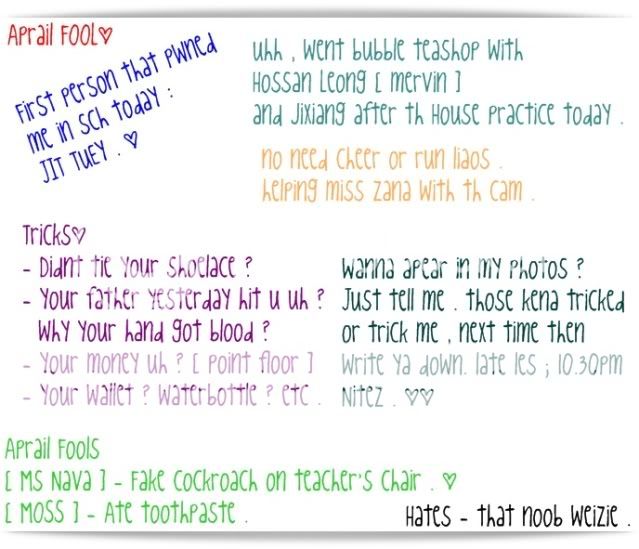 Aprail FOOL♡
First person that pwned
me in sch today :
JIT TUEY . ♡
uhh , went bubble teashop with
Hossan Leong [ mervin ]
and Jixiang after th House practice today .
no need cheer or run liaos .
helping miss zana with th cam .
Tricks♡
- Didnt tie your shoelace ?
- Your father yesterday hit u uh ?
Why your hand got blood ?
- Your money uh ? [ point floor ]
- Your wallet ? waterbottle ? etc .
Wanna apear in my photos ?
Just tell me . those kena tricked
or trick me , next time then
write ya down. late les ; 10.30pm
Nitez . ♡♡
Aprail Fools
[ MS Nava ] - Fake cockroach on teacher's chair . ♡
[ MOSS ] - Ate toothpaste .
Hates - that noob weizie .